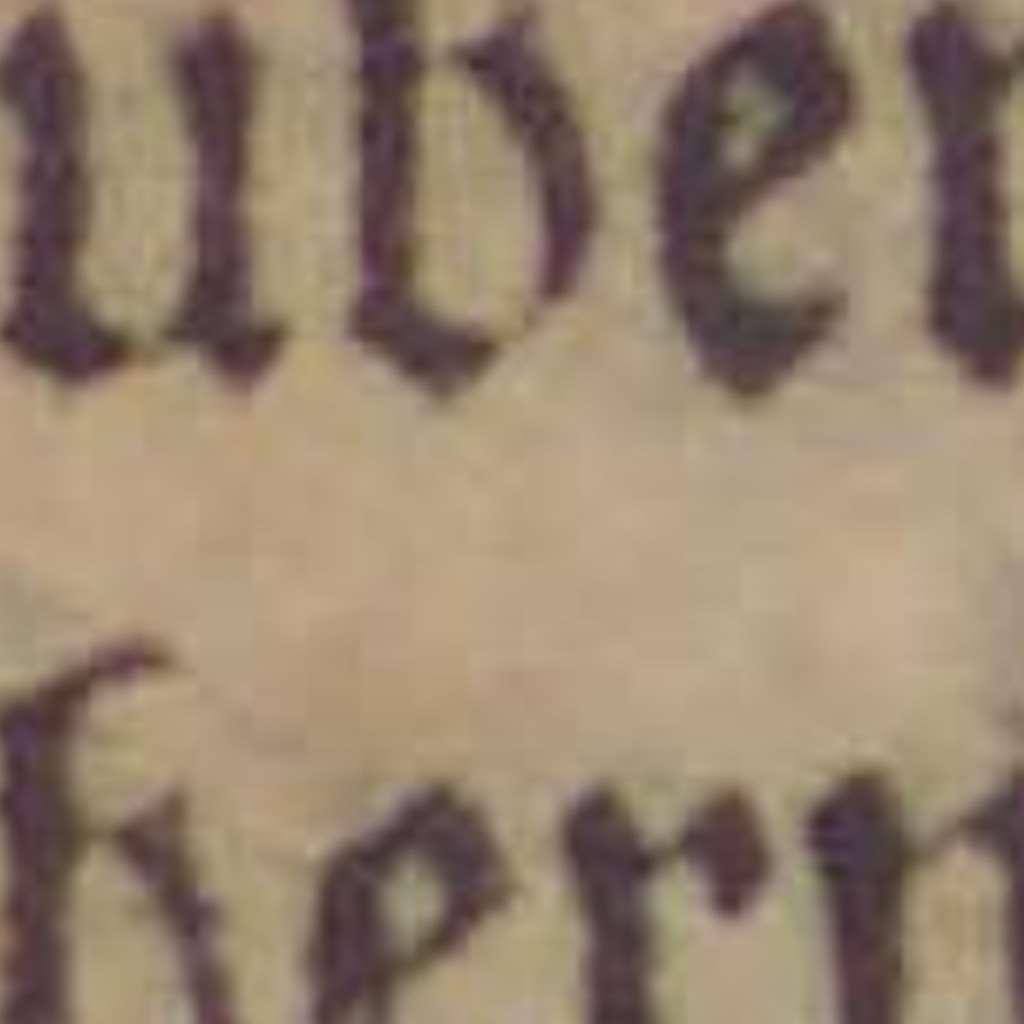 uber
hern